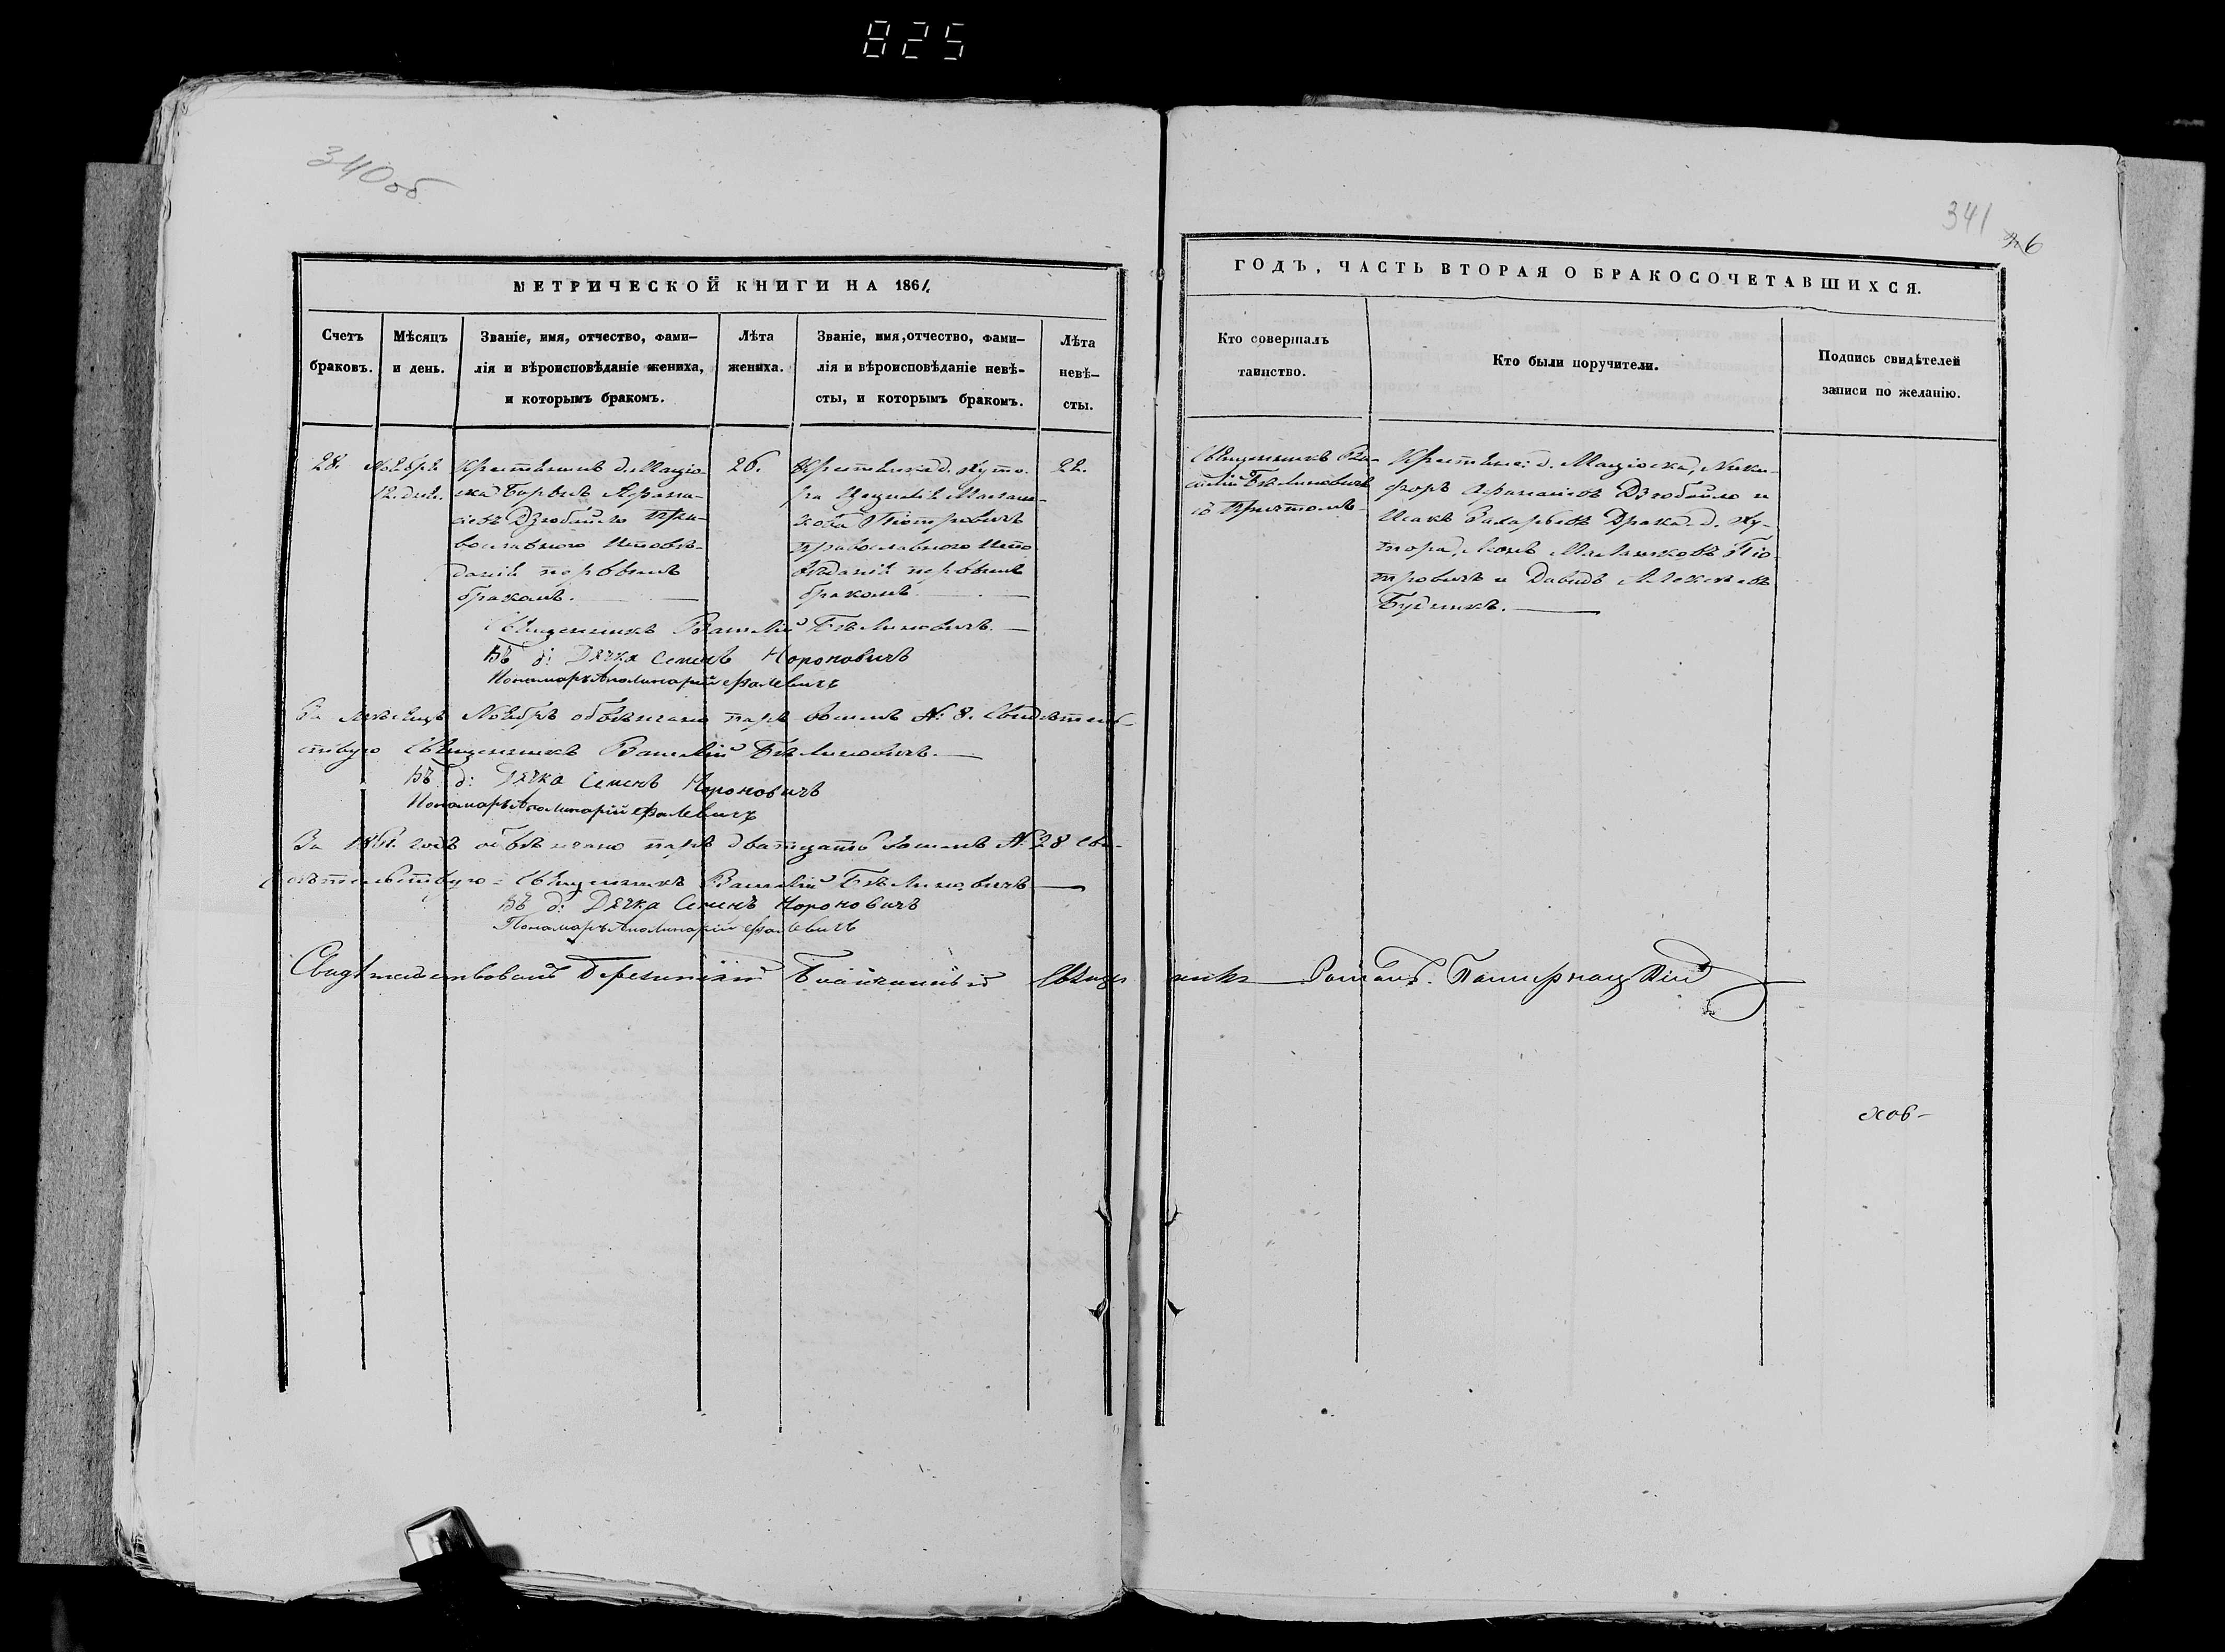 825
340об
341
6
МЕТРИЧЕСКОЙ КНИГИ НА 1861.
ГОДЪ, ЧАСТЬ ВТОРАЯ О БРАКОСОЧЕТАВШИХСЯ.
Счетъ
браковъ.
Мѣсяцъ
и день.
Званіе, имя, отчество, фами-
лія и вѣроисповѣданіе жениха,
и которымъ бракомъ.
Лѣта
жениха.
Званіе, имя, отчество, фами-
лія и вѣроисповѣданіе невѣ-
сты, и которымъ бракомъ.
Лѣта
невѣ-
сты.
Кто совершалъ
таинство.
Кто были поручители.
Подпись свидѣтелей
записи по желанію.
28.
Ноября
12. дня.
Крестьянинъ д.
Афана-
сіевъ Дзюбайло Пра-
вославнаго Исповѣ-
данія первымъ
бракомъ.
26.
Крестьянка д. Хуто-
ра
Піотровичъ
Православнаго Испо
вѣданія первымъ
бракомъ
22.
Священникъ Ва-
силій Бѣлиновичъ
съ Причтомъ
Крестьяне: д. Ники-
форъ Афанасіевъ Дзюбайло и
Исакъ Захарьевъ д. Ху-
тора, Піо
тровичъ и Давидъ Алексѣевъ
Будникъ.
Священникъ Василій Бѣлиновичъ.
Въ д: Дячка Семенъ Нороновичъ
Пономарь Аполинарій Фалевичъ
За мѣсяцъ Ноябрь обвѣнчано паръ восемь № 8. Свидѣтель-
ствую Священникъ Василій Бѣлиновичъ.
Въ д: Дячка Семенъ Нороновичъ
Пономарь Аполинарій Фалевичъ
За 1861. годъ обвѣнчано паръ двадцать восемь № 28 Сви-
дѣтельствую: Священникъ Василій Бѣлиновичъ
Въ д: Дячка Семенъ Нороновичъ
Пономарь Аполинарій Фалевичъ
Свидѣтельствовалъ Березинскій Благочинный Священникъ Романъ Пастернацкій